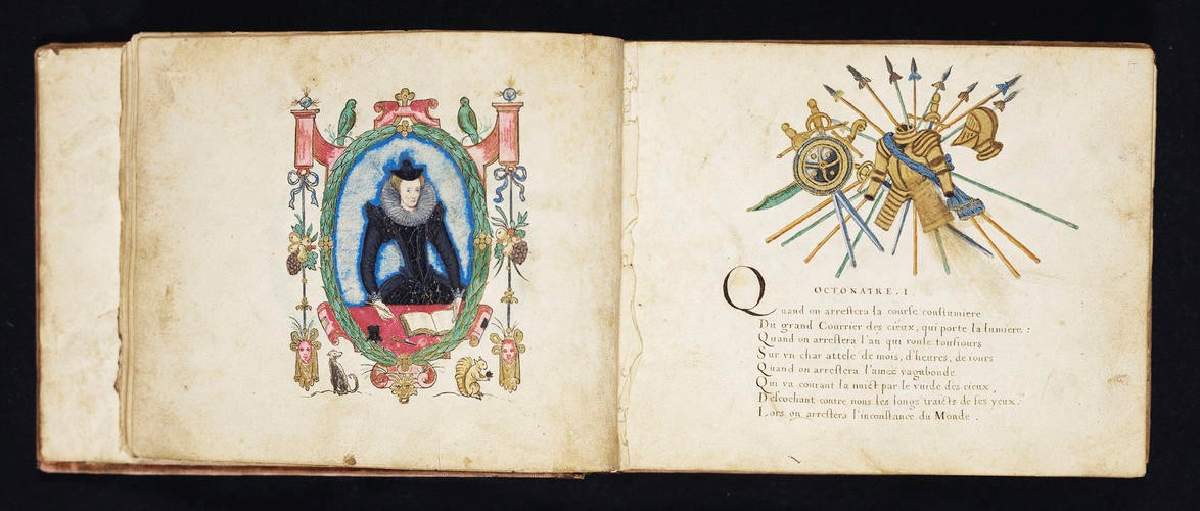 OCTONAIRE. I.
Quand on arrestera la course coustumiere
Du grand Courrier des cieux, qui porte la lumiere :
Quand on arrestera l'an qui roule tousiours
Sur vn char attelé de mois, d'heures, de iours
Quand on arrestera l'armee vagabonde
Qui va courant la nuict par le vuide des cieux,
Descochant contre nous les longs traicts de ses yeux,
Lors on arrestera l'inconstance du Monde .